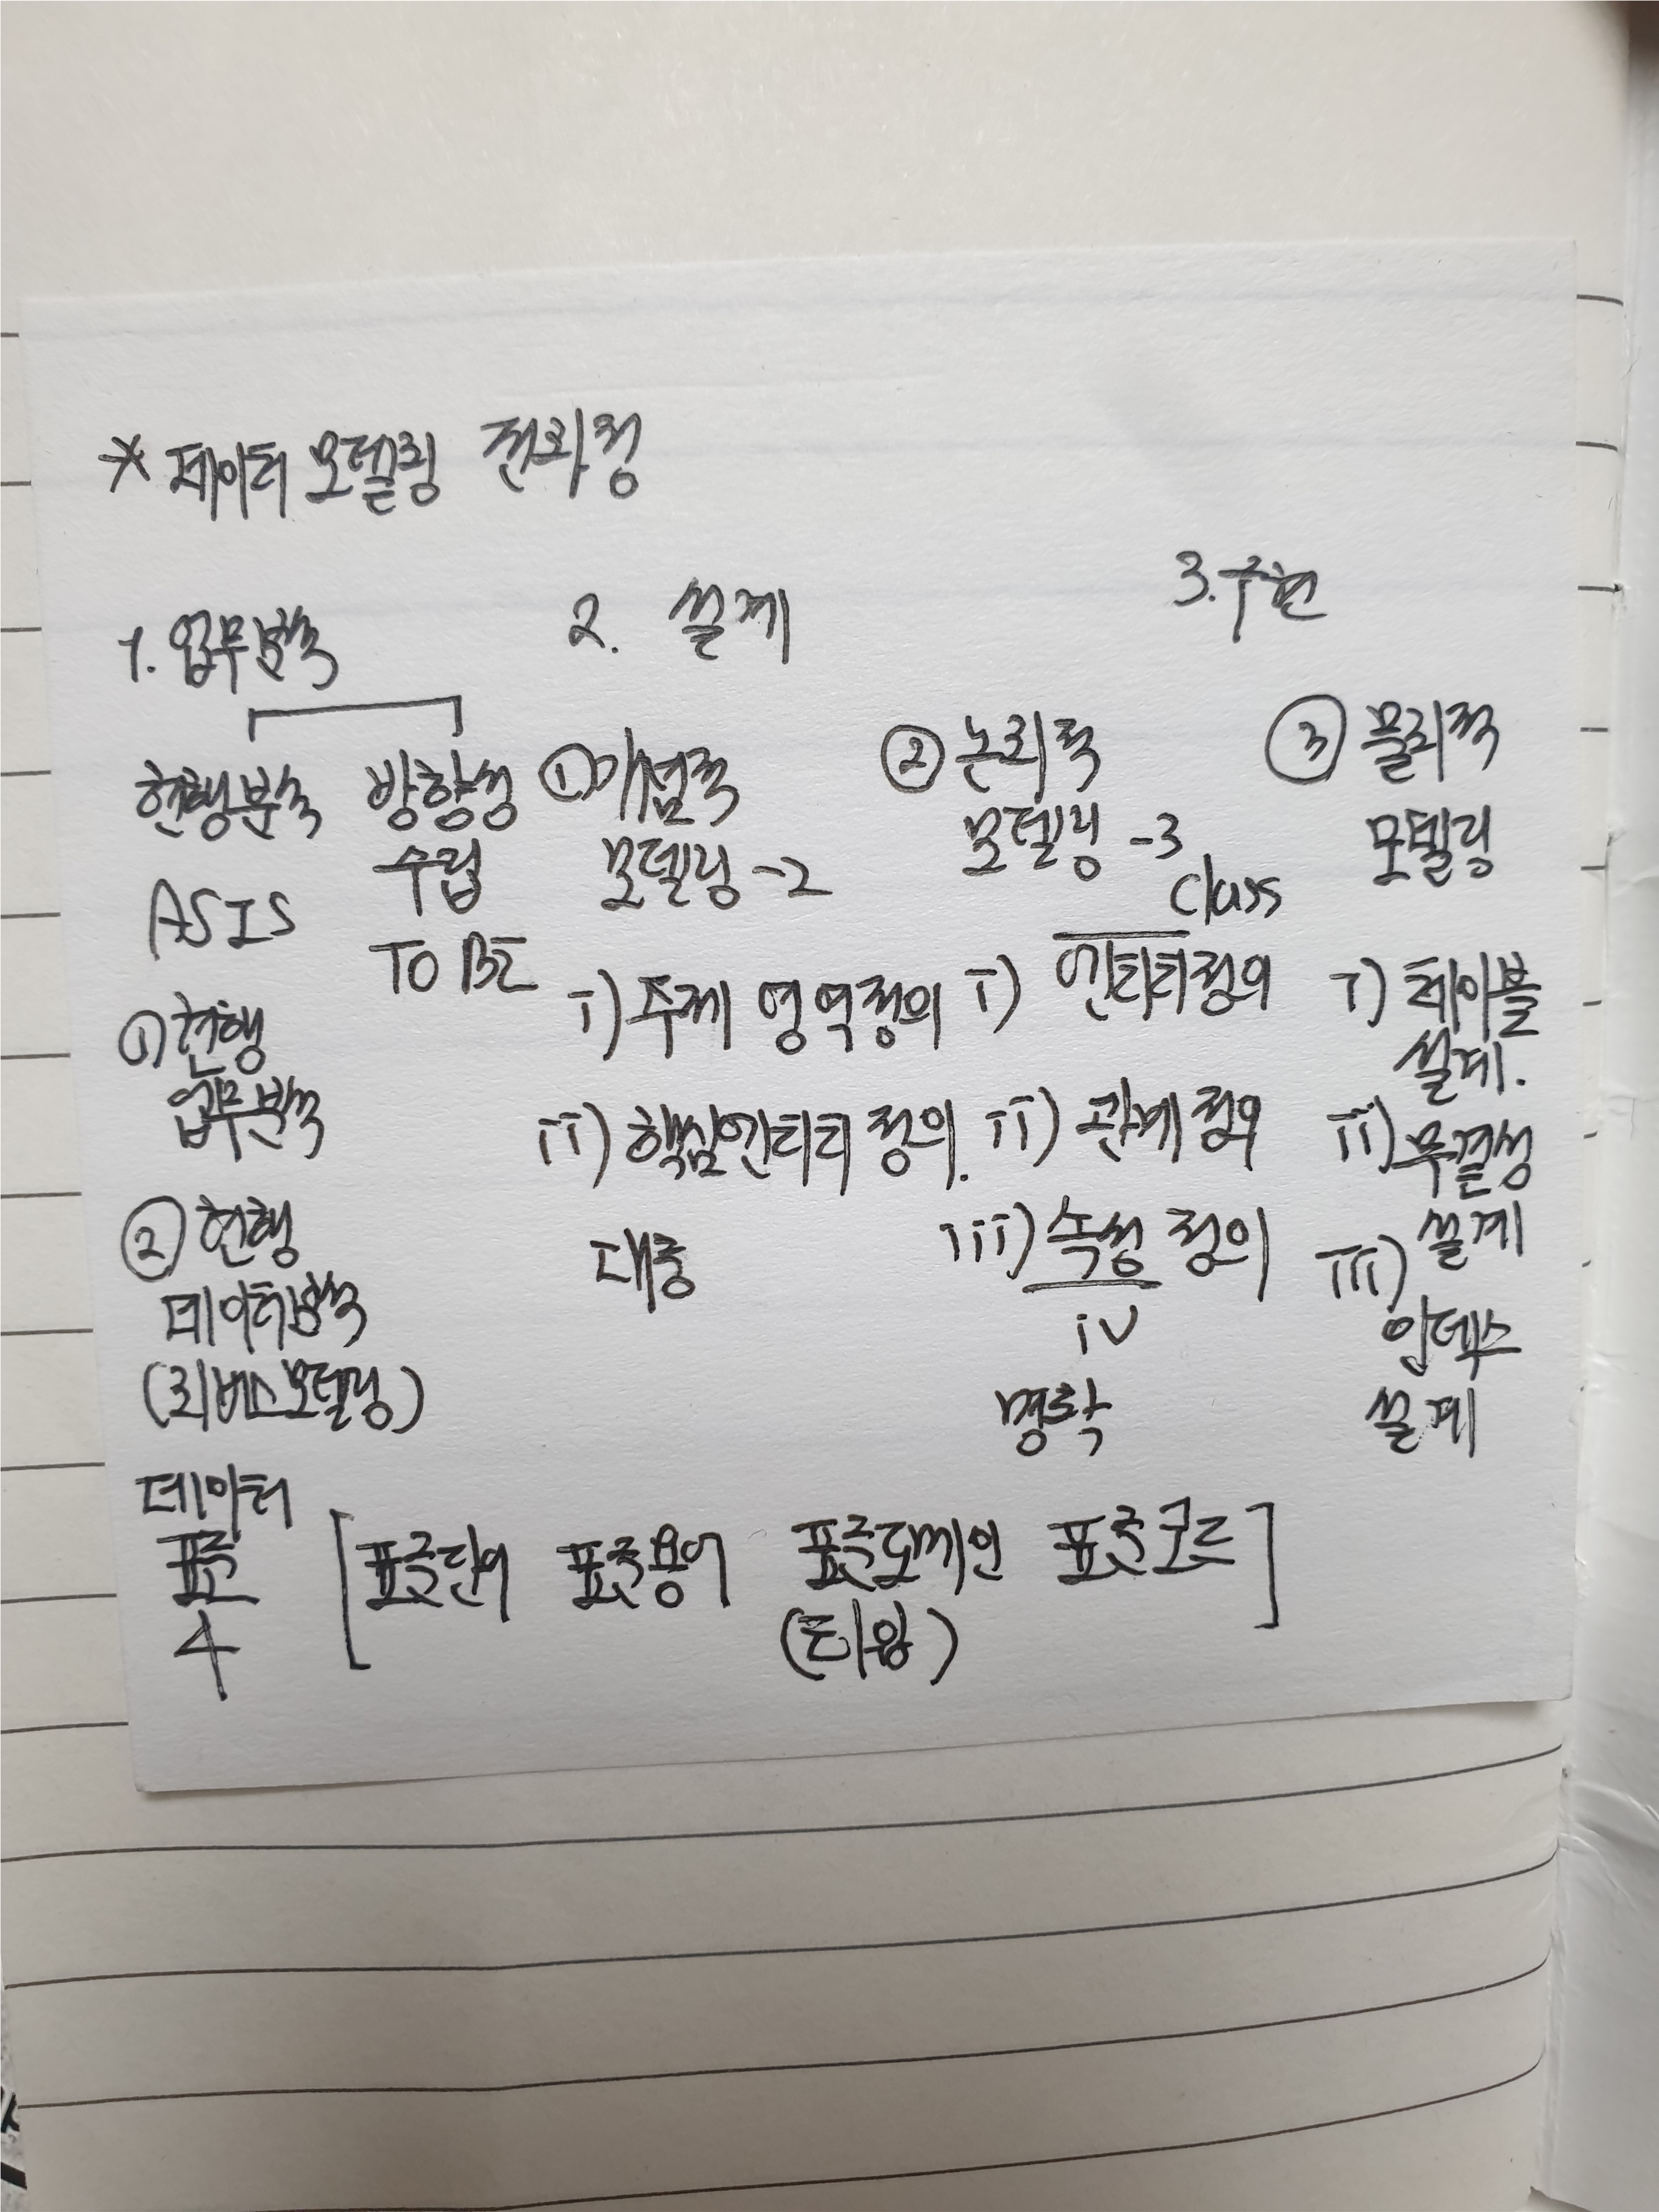 * 데이터 모델링 전과정
1. 업무분석
2. 설계
3. 구현
현행분석
ASIS
방향성
수립
TO BE
① 현행
업무분석
② 현행
데이터분석
(리버스모델링)
① 개념적
모델링 -2
i) 주제 영역정의
ii) 핵심엔티티 정의.
대충
② 논리적
모델링 -3
class
i) 엔티티정의
ii) 관계 정의
iii) 속성 정의
iv
명확
③ 물리적
모델링
i) 테이블
설계.
ii) 무결성
설계
iii)
인덱스
설계
데이터
표준
4
[표준단어 표준용어 표준도메인 표준코드]